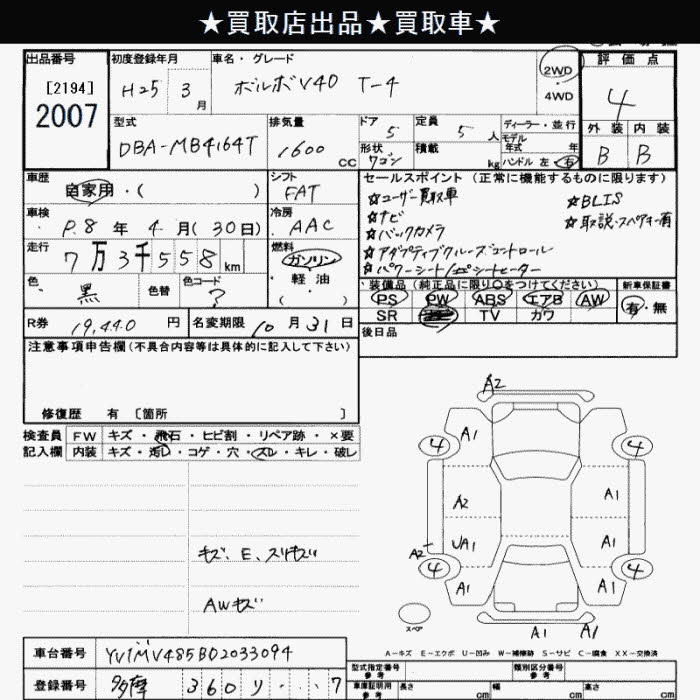 ★買取店出品★買取車★
出品番号 初度登録年月 車名・グレード 評価点
[2194] H25 3 月 ボルボV40 T-4 2WD・4WD 4
2007 型式 排気量 ドア 定員 ディーラー・並行 外装 内装
DBA-MB4164T 1600 CC 5 5 人 モデル年式 年 B B
形状 ワゴン 積載 kg ハンドル 左・右
車歴 自家用・( ) シフト FAT セールスポイント(正常に機能するものに限ります)
車検 R8 年 4 月(30日) 冷房 AAC ☆ユーザー買取車 ☆BLIS
☆ナビ ☆取説・スペアキー有
☆バックカメラ
走行 7万3千558km 燃料 ガソリン・軽油・( ) ☆アダプティブクルーズコントロール
色 黒 色替 色コード ? ☆パワーシート/シートヒーター
装備品(純正品に限り○をつけてください) 新車保証書
PS PW ABS エアB AW 有・無
SR TV カワ
R券 19,440 円 名変期限 10 月 31 日
後日品
注意事項申告欄(不具合内容等は具体的に記入して下さい)
修復歴 有 〔箇所 〕
検査員 FW キズ・飛石・ヒビ割・リペア跡・×要
記入欄 内装 キズ・汚レ・コゲ・穴・スレ・キレ・破レ
A2
4 A1 4
A2 A1
A2 UA1 A1
4 A1 A1 4
A1 A1
キズ、E、スリキズ
AWキズ
スペア
A-キズ E-エクボ U-凹み W-補修跡 S-サビ C-腐食 XX-交換済
車台番号 YV1MV485BD2033094
登録番号 多摩 360 リ ・・・7
型式指定番号 参考 類別区分番号 参考
車庫証明用 参考 長さ cm 幅 cm 高さ cm